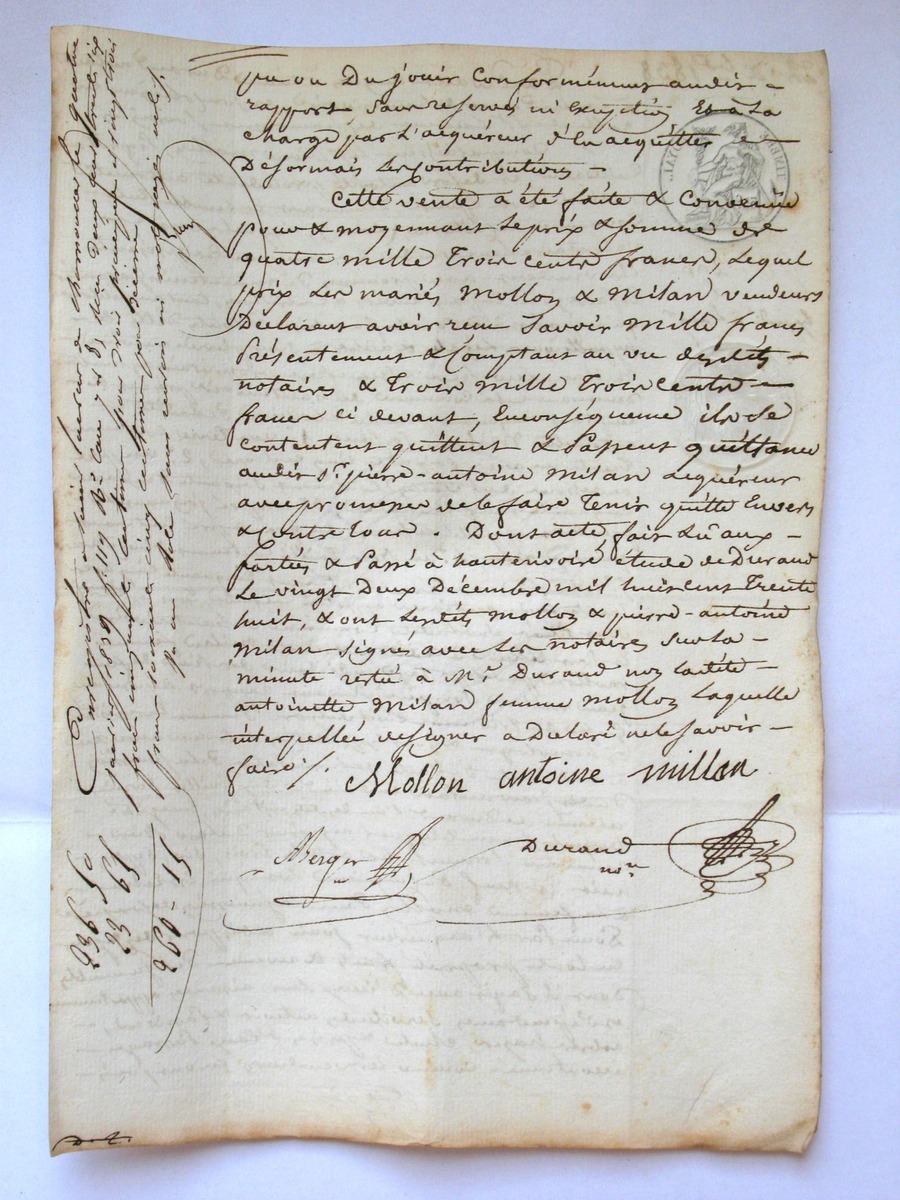 pu ou Du jouir conformément audit
rapport, sans reserves ni exception Et à la
charge par L'acquéreur d'en acquitter
Désormais Les contributions
Cette vente a été faite & Convenue
pour & moyennant Le prix & somme de
quatre mille Trois cents francs, Lequel
prix Les mariés Mollon & Milan vendeurs
Déclarent avoir reçu Savoir Mille francs
Présentement & Comptant au vu desdits
notaires & Trois mille Trois cents
francs ci devant, En conséquence ils se
contentent quittent & Passent quittance
audit Sr. pierre-antoine Milan acquéreur
avec promesse de le faire Tenir quitte Envers
& Contre Tous. Dont acte, fait Lû aux
Parties & Passé à hauterivoire étude de Durand
Le vingt Deux Décembre mil huit cent Trente
huit, & ont Lesdits Mollon & pierre-antoine
Milan signés avec Les notaires sur La
minute restée à Me. Durand non Ladite
antoinette Milan femme Mollon Laquelle
interpellée de signer a Déclaré ne le savoir
faire /.
Mollon antoine millan
Berger
Durand
nore
Enregistré à Saint Laurent de chamousset le quatre
janvier 1839 f. 119 Ro. Case 7 et 8, reçu deux
francs cinquante centimes pour
francs soixante cinq centimes pour dixième